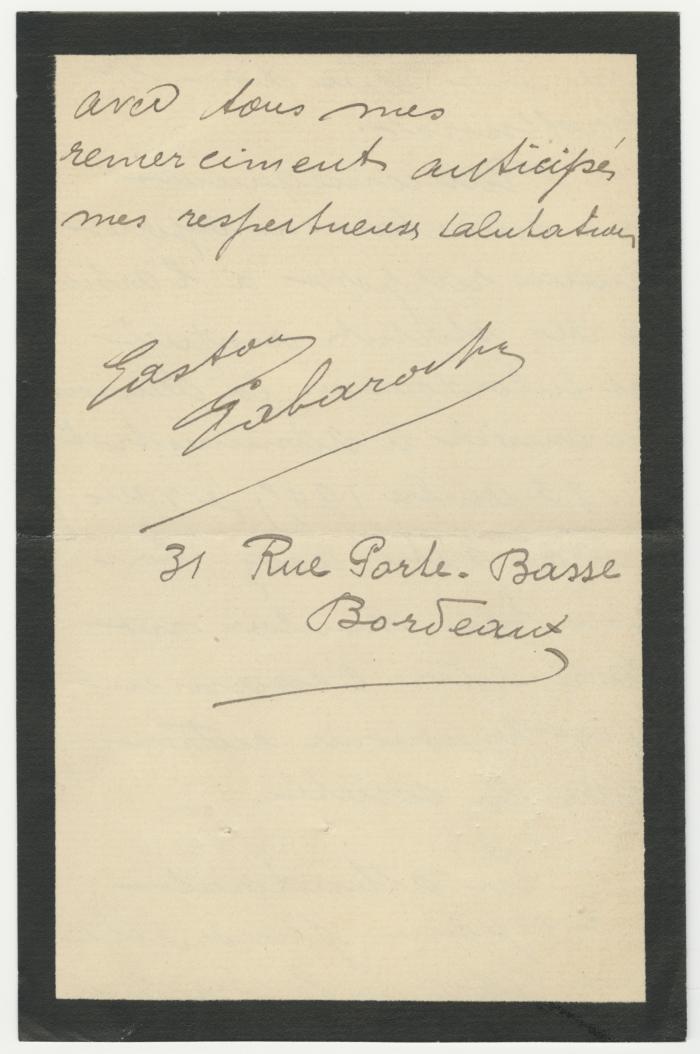 avec tous mes
remerciments anticipés
mes respectueuses salutations
Gaston
Gabaroche
31 Rue Porte-Basse
Bordeaux